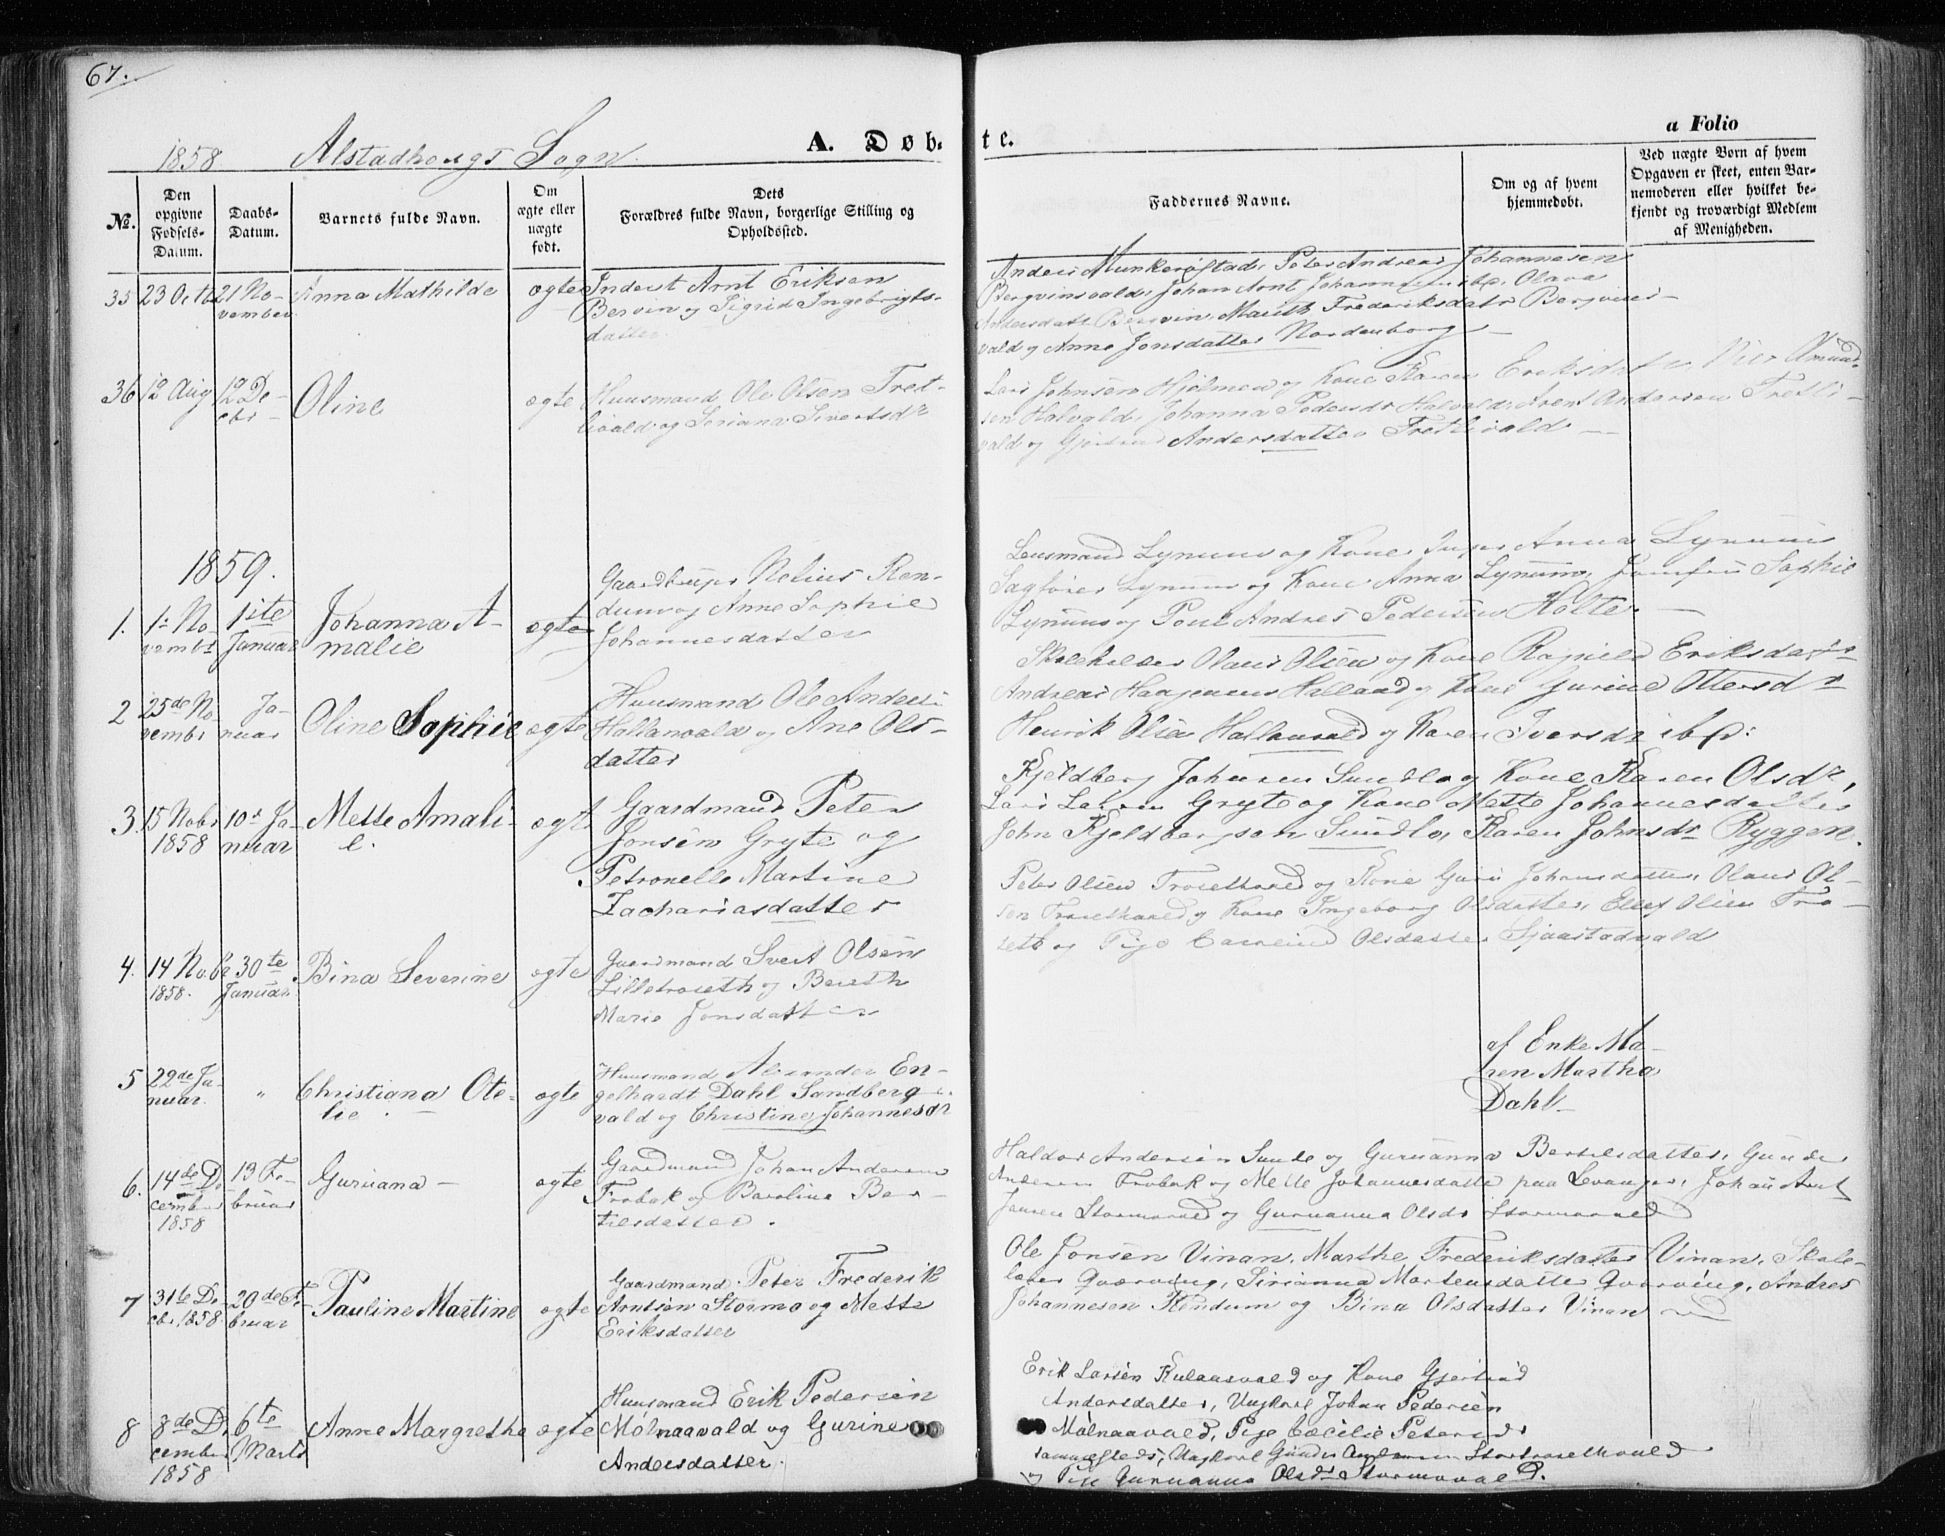 67.
1858 Alstadhougs Sogn.
A. Døb-
te.
a Folio
No.
Den
opgivne
Fødsels-
Datum.
Daabs-
Datum.
Barnets fulde Navn.
Om
ægte eller
uægte
født.
Dets
Forældres fulde Navn, borgerlige Stilling og
Opholdssted.
Faddernes Navne.
Om og af hvem
hjemmedøbt.
Ved uægte Børn af hvem
Opgaven er skeet, enten Bar-
nemoderen eller hvilket be-
kjendt og troværdigt Medlem
af Menigheden.
35 23 Octb 21 No-
vember
Anna Mathilde
ægte
Inderst Arnt Eriksen
Bervin og Sigrid Ingebrigts-
datter
Anders Munkerøstad, Peter Andreas Johannesen
Bergvinsvald, Johan Arnt Johannesen ibd, Olava
Andersdatt Bergvin, Marith Frederiksdatr Bergvins-
vald og Anne Jonsdatter Nordenborg
36 12 Aug 12 De-
cbr
Oline
ægte
Huusmand Ole Olsen Tret-
livald og Seriana Sivertsdr
Lars Johnsen Hjelmen og Kone Karen Eriksdatter
sen Halvald, Johanna Pedersdr Halvald, Arent Andersen Tretli-
vald og Gjertrud Andersdatter Tretlivald
1859.
1. 1ste No-
vembr
1ste
Januar
Johanna A-
malie
ægte
Gaardbruger Nelius Ren-
dum og Anne Sophie
Johannesdatter
Lensmand Lynum og Kone Inger Anna Lynum
Sagfører Lynum og Kone Anna Lynum, Jomfru Sophie
Lynum og Poul Andres Pedersen Holte
2 25de No
vembr
Ja-
nuar
Oline Sophie
ægte
Huusmand Ole Anders
Hallanvald og Ane Ols-
datter
Skoleholder Olaus Olsen og Kone Ragnild Eriksdatter
Andreas Haagensen Halland og Kone Gurine Ottersdr
Henrik Olsen Hallanvald og Karen Iversdr ibd:
3. 15 Nobr
1858
10de Ja-
nuar
Mette Amali-
e.
ægte
Gaardmand Peter
Jonsen Gryte og
Petronelle Martine
Zachariasdatter
Kjeldberg Johnsen Sundlo og Kone Karen Olsdr,
Lars Larsen Gryte og Kone Mette Johannesdatter
John Kjeldbergsen Sundlo, Karen Johnsdr Ryggen.
4. 14 Nobr
1858.
30te
Januar
Bina Severine
ægte
Gaardmand Svert Olsen
Lilletroseth og Bereth
Marie Jonsdatter
Peter Olsen Trosethvald og Kone Guru Johansdatter, Olaus Ol-
sen Trosethvald og Kone Ingeborg Olsdatter, Ellef Olsen Tro-
seth og Pige Olsdatter Sjaastadvald
5 22de Ja-
nuar.
"
Christiana Ote-
lie
ægte
Huusmand Alexander En-
gelhardt Dahl Sandberg-
vald og Christine Johannesdr
af Enke Ma-
ren Martha
Dahl
6. 14de De
cember
1858
13 Fe-
bruar
Guruana
ægte
Gaardmand Johan Andersen
Trobak og Baroline Ber-
telsdatter.
Haldor Andersen Sunde og Guruanna Bertelsdatter, Gunder
Andersen Trobak og Mette Johannesdatter paa Levanger, Johan Arnt
Jensen Stormovald og Guruanna Olsdr Stormovald
7 31te De-
cbr 1858
20de Fe-
bruar
Pauline Martine
ægte
Gaardmand Peter Frederik
Arntsen Stormo og Mette
Eriksdatter
Ole Jonsen Vinan, Marthe Frederiksdatter Vinan, Skole-
lærer Qværving, Sirianna Mortensdatter Qværving, Andres
Johannesen Rendum og Bina Olsdatter Vinan
8 8de De
cember
1858
6te
Marts
Anne Margrethe
ægte
Huusmand Erik Pedersen
Mølnaavald og Gurine
Andersdatter.
Erik Larsen Kulaasvald og Kone Gjertrud
Andersdatter, Ungkarl Johan Pedersen
Mølnaavald, Pige Cæcilie Petersdr
sammesteds, Ungkarl Gunder Andersen Stortrosethvald
og Pige Guruanna Olsdr Stormovald.